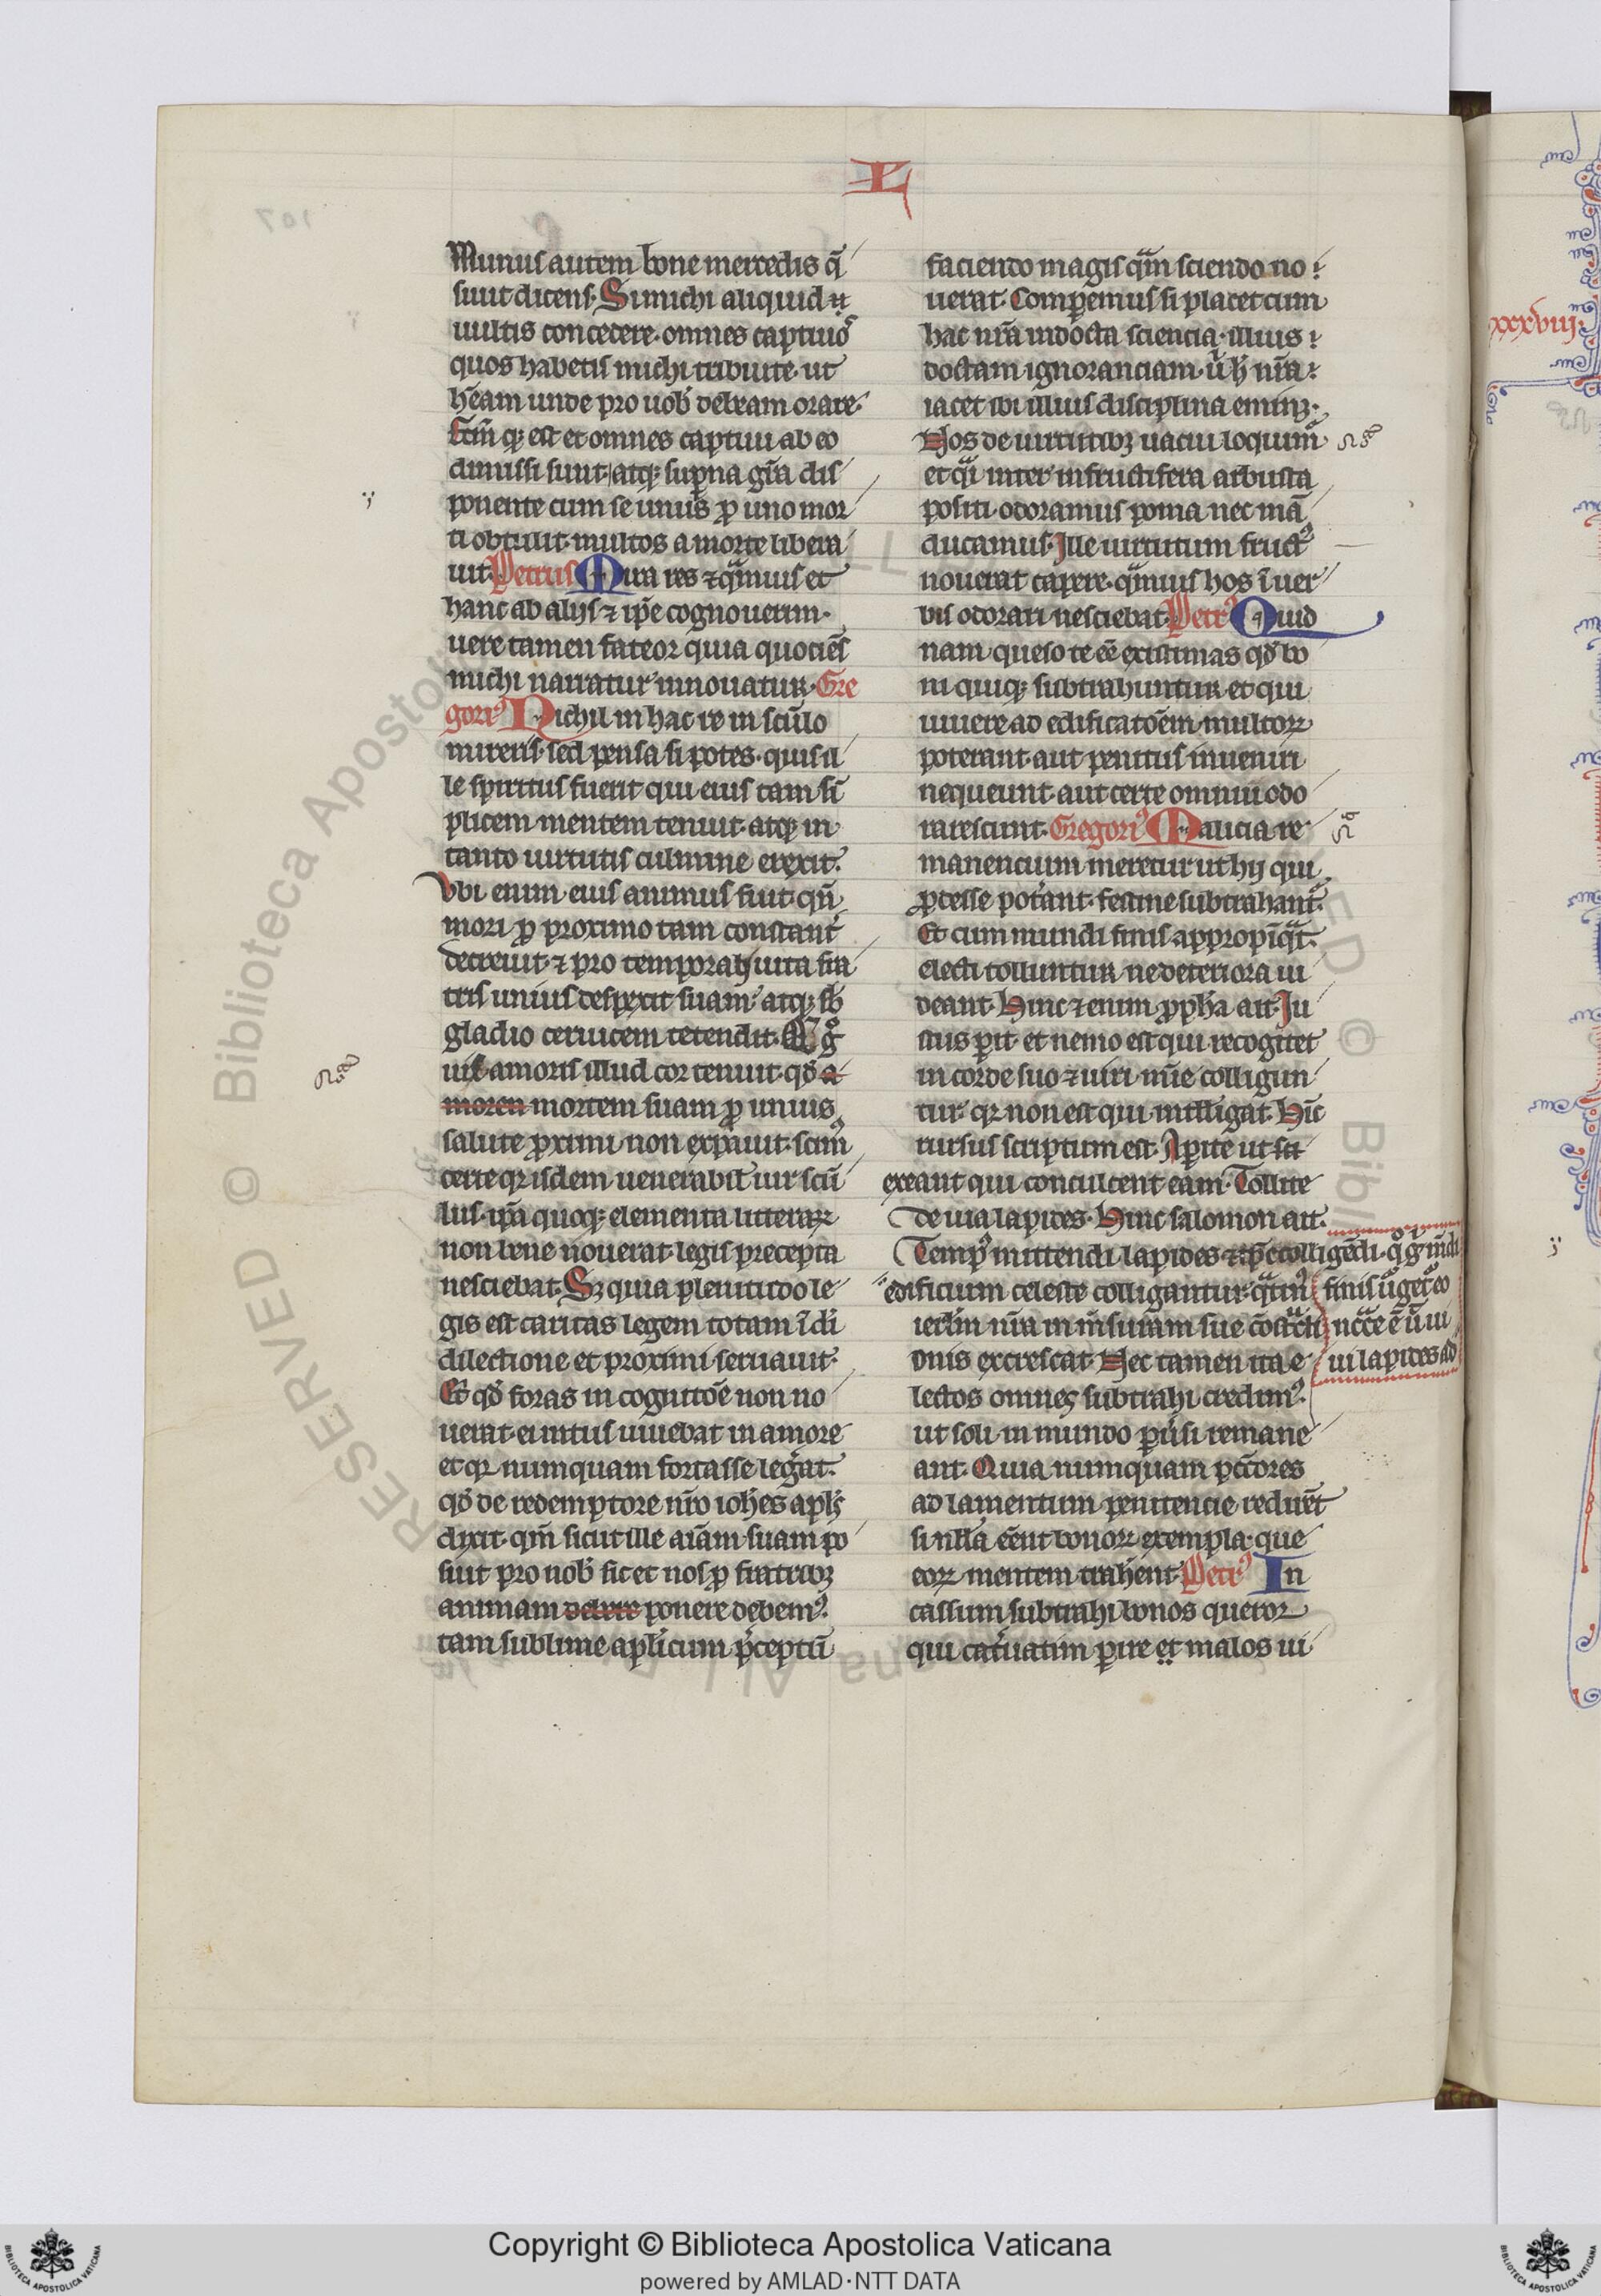 L
Munus autem bone mercedis q̄
siuit dicens. Si michi aliquid
uultis concedere. omnes captiuos
quos habetis michi tribuite. ut
hēam unde pro uob̄ debeam orare.
fctm̄ q; est et omnes captiui ab eo
dimissi sunt atq; sup̄na gr̄a dis
ponente cum se unus ꝓ uno mor
ti obtulit. multos a morte libera
uit. Petrus Mira res ⁊ qͣmuis et
hanc ab alijs ⁊ ip̄e cognouerim.
uere tamen fateor quia quociēs
michi narratur innouatur. Gre
gori⁹ Nichil in hac re in sc̄lo
mireris. sed pensa si potes. quis il
le spiritus fuerit qui eius tam sī
plicem mentem tenuit. atq; in
tanto uirtutis culmine erexit.
Vbi enim eius animus fuit. qn̄
mori ꝓ proximo tam constant̄
decreuit. ⁊ pro temporali uita fra
tris unius despexit suam. atq; sb̄
gladio ceruicem tetendit. Q
uis amoris illud cor tenuit. qd̄ a
morem mortem suam ꝓ unius
salute ꝓximi non expauit. scim⁹
certe qꝛ isdem uenerabil̄ uir scū
lus. ip̄a quoq; elementa litteraꝝ
non bene nouerat. legis precepta
nesciebat. Sꝫ quia plenitudo le
gis est caritas legem totam ī di
dilectione et proximi seruauit.
Et qd̄ foras in cognitōe non no
uerat. ei intus uiuebat in amore
et qꝛ numquam fortasse leḡat.
qd̄ de redemptore nr̄o ioh̄es apl̄s
dixit. qm̄ sicut ille aīam suam po
suit pro nob̄ sic et nos ꝓ fratribꝫ
animam debere ponere debem⁹.
tam sublime apl̄icum p̄ceptū
faciendo magis qͣm sciendo no
uerat. Compemus si placet cum
hac nr̄a indocta sciencia. illius
doctam ignoranciam. ū h̄ nr̄a
iacet ibi illius disciplina eminꝫ.
Nos de uirtutibꝫ uacui loquim̄
et qͣi inter infructifera arbusta
positi. odoramus poma nec mā
ducamus. Ille uirtutum fruct⁹
nouerat capere. qͣmuis hos ī uer
bis odorari nesciebat. Petr⁹ Quid
nam queso te eē existimas qd̄ bo
ni quiq; subtrahuntur. et qui
uiuere ad edificatōem multoꝝ
poterant. aut penitus inueniri
nequeunt. aut certe omnimodo
rarescunt. Gregori⁹ Malicia re
manencium meretur ut hij qui
ꝓdesse pot̄ant. festine subtrahant̄.
Et cum mundi finis appropīqͣt.
electi tolluntur. ne deteriora ui
deant. Hinc ⁊enim ꝓph̄a ait. Ju
stus ꝑit. et nemo est qui recogitet
in corde suo ⁊ uiri mīe colligun
tur. qꝛ non est qui intelligat. Hīc
rursus scriptum est. Aꝑite ut
exeant qui conculcent eam. Tollite
de uia lapides. Hinc salomon ait.
Temp⁹ mittendi lapides ⁊ tp̄c colligēdi.
finis ūget. eo
ncc̄e ē ū ui
ui lapides ad
edificium celeste colligantur. qͣtin⁹
ierl̄m nr̄a in m̄suram sue
onis excrescat. Nec tamen ita e
lectos omnes subtrahi credim⁹.
ut soli in mundo ꝑu̓si remane
ant. Quia numquam pctōres
ad lamentum penitencie redirēt
si nll̄a eēnt bonoꝝ exempla. que
eoꝝ mentem trah̄ent. Petr⁹ In
cassum subtrahi bonos queror
qui cat̄uatim ꝑire et malos ui
xxxviij.
Copyright © Biblioteca Apostolica Vaticana
powered by AMLAD·NTT DATA